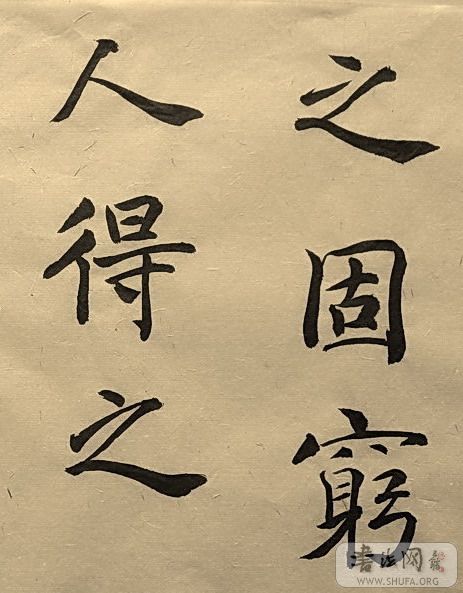 之固窮
人得之
書法网
WWW.SHUFA.ORG